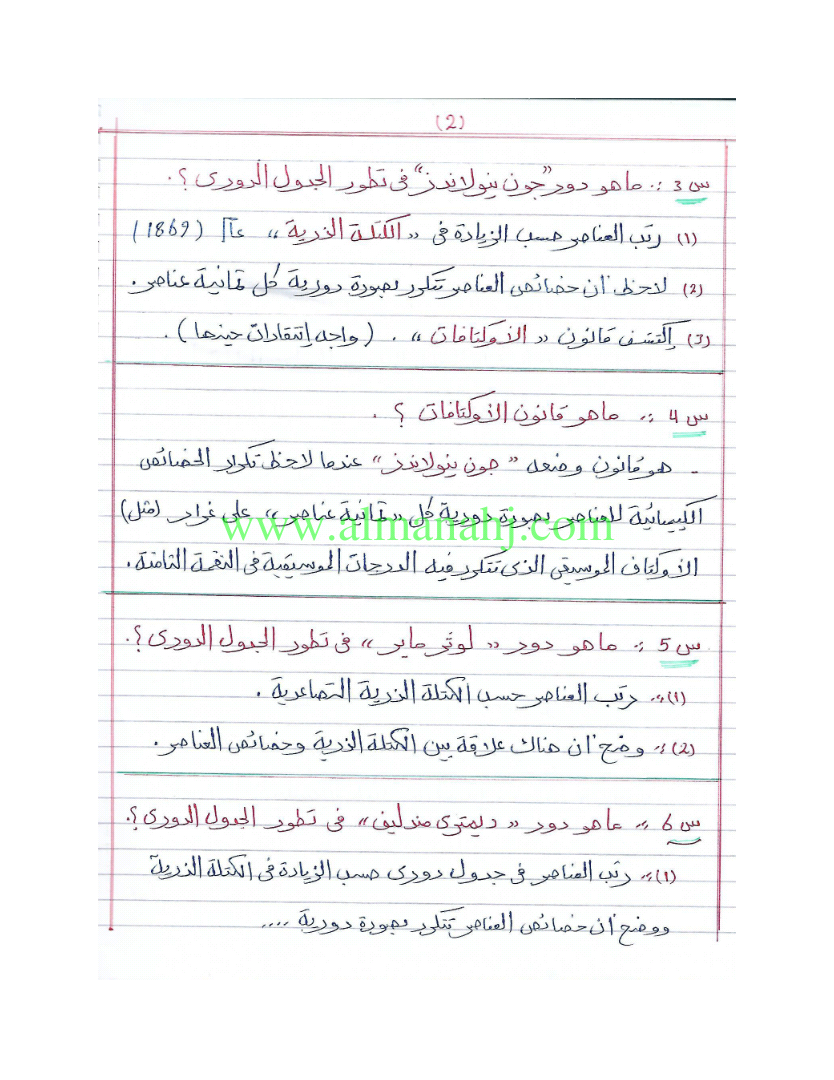 (2)
س3 :. ما هو دور "جون نيولاندز" في تطور الجدول الدوري ؟.
(1) رتب العناصر حسب الزيادة في «الكتلة الذرية» عام (1869)
(2) لاحظ أن خصائص العناصر تتكرر بصورة دورية كل ثمانية عناصر.
(3) إكتشف قانون «الأوكتافات». (واجه إنتقادات حينها).
س4 :. ما هو قانون الأوكتافات ؟.
- هو قانون وضعه "جون نيولاندز" عندما لاحظ تكرار الخصائص
الكيميائية للعناصر بصورة دورية كل «ثمانية عناصر» على غرار (مثل)
www.almanahj.com
الأوكتاف الموسيقي الذي تتكرر فيه الدرجات الموسيقية في النغمة الثامنة.
س5 :. ما هو دور «لوثر ماير» في تطور الجدول الدوري ؟.
(1):. رتب العناصر حسب الكتلة الذرية التصاعدية.
(2):. وضح أن هناك علاقة بين الكتلة الذرية وخصائص العناصر.
س6 :. ما هو دور «ديمتري مندليف» في تطور الجدول الدوري ؟.
(1):. رتب العناصر في جدول دوري حسب الزيادة في الكتلة الذرية
ووضح أن خصائص العناصر تتكرر بصورة دورية ....